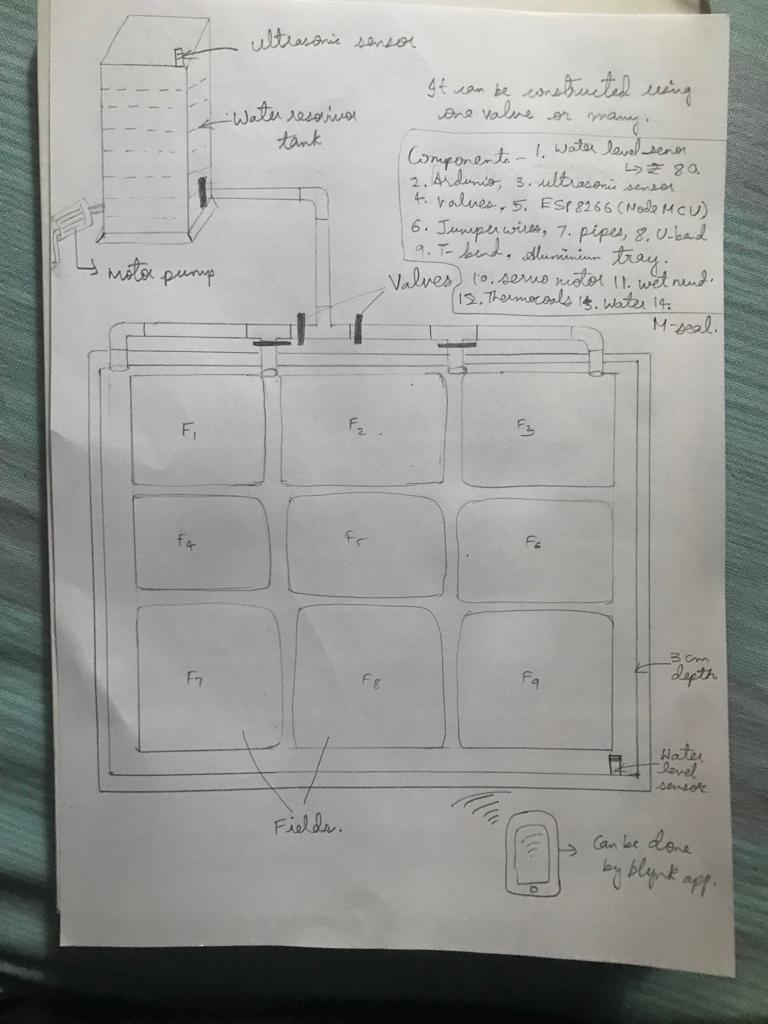 ultrasonic sensor
Water reserivior
tank
motor pump
It can be constructed using
one valve or many.
Components - 1. Water level senor
↳ ₹ 80.
2. Ardunio, 3. ultrasonic sensor
4. Valves, 5. ESP8266 (Node MCU)
6. Jumper wires, 7. pipes, 8. U-bend
9. T-bend, Aluminium tray.
10. servo motor 11. wet mud.
12. Thermocoals 13. Water 14.
M-seal.
Valves
F1
F2
F3
F4
F5
F6
F7
F8
F9
3 cm
depth
Water
level
sensor
Fields.
Can be done
by blynk app.